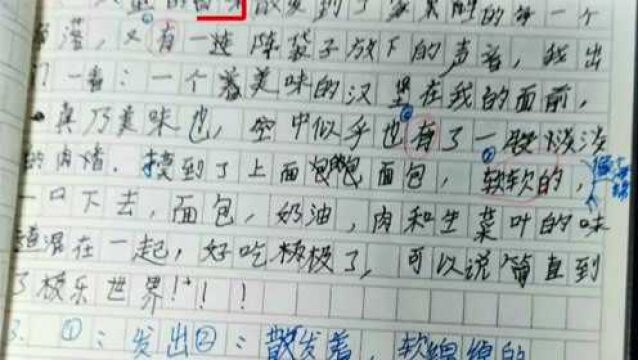 散发到了家里的每一个
落，又有一连阵袋子放下的声音，我出
门一看：一个美味的汉堡在我的面前，
真乃美味也，空中似乎也有了一股淡淡
的肉猪．摸到了上面包，软软的，
一口下去，面包，奶油，肉和生菜叶的味
道混在一起，好吃极了，可以说简直到
了极乐世界！！！
3. ①：发出②：散发着，软绵绵的